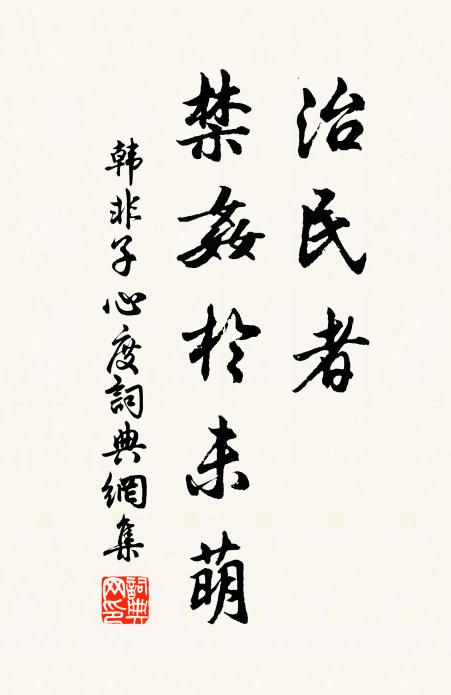 治民者
禁姦於未萌
韩非子心度詞典網集
詞典網印